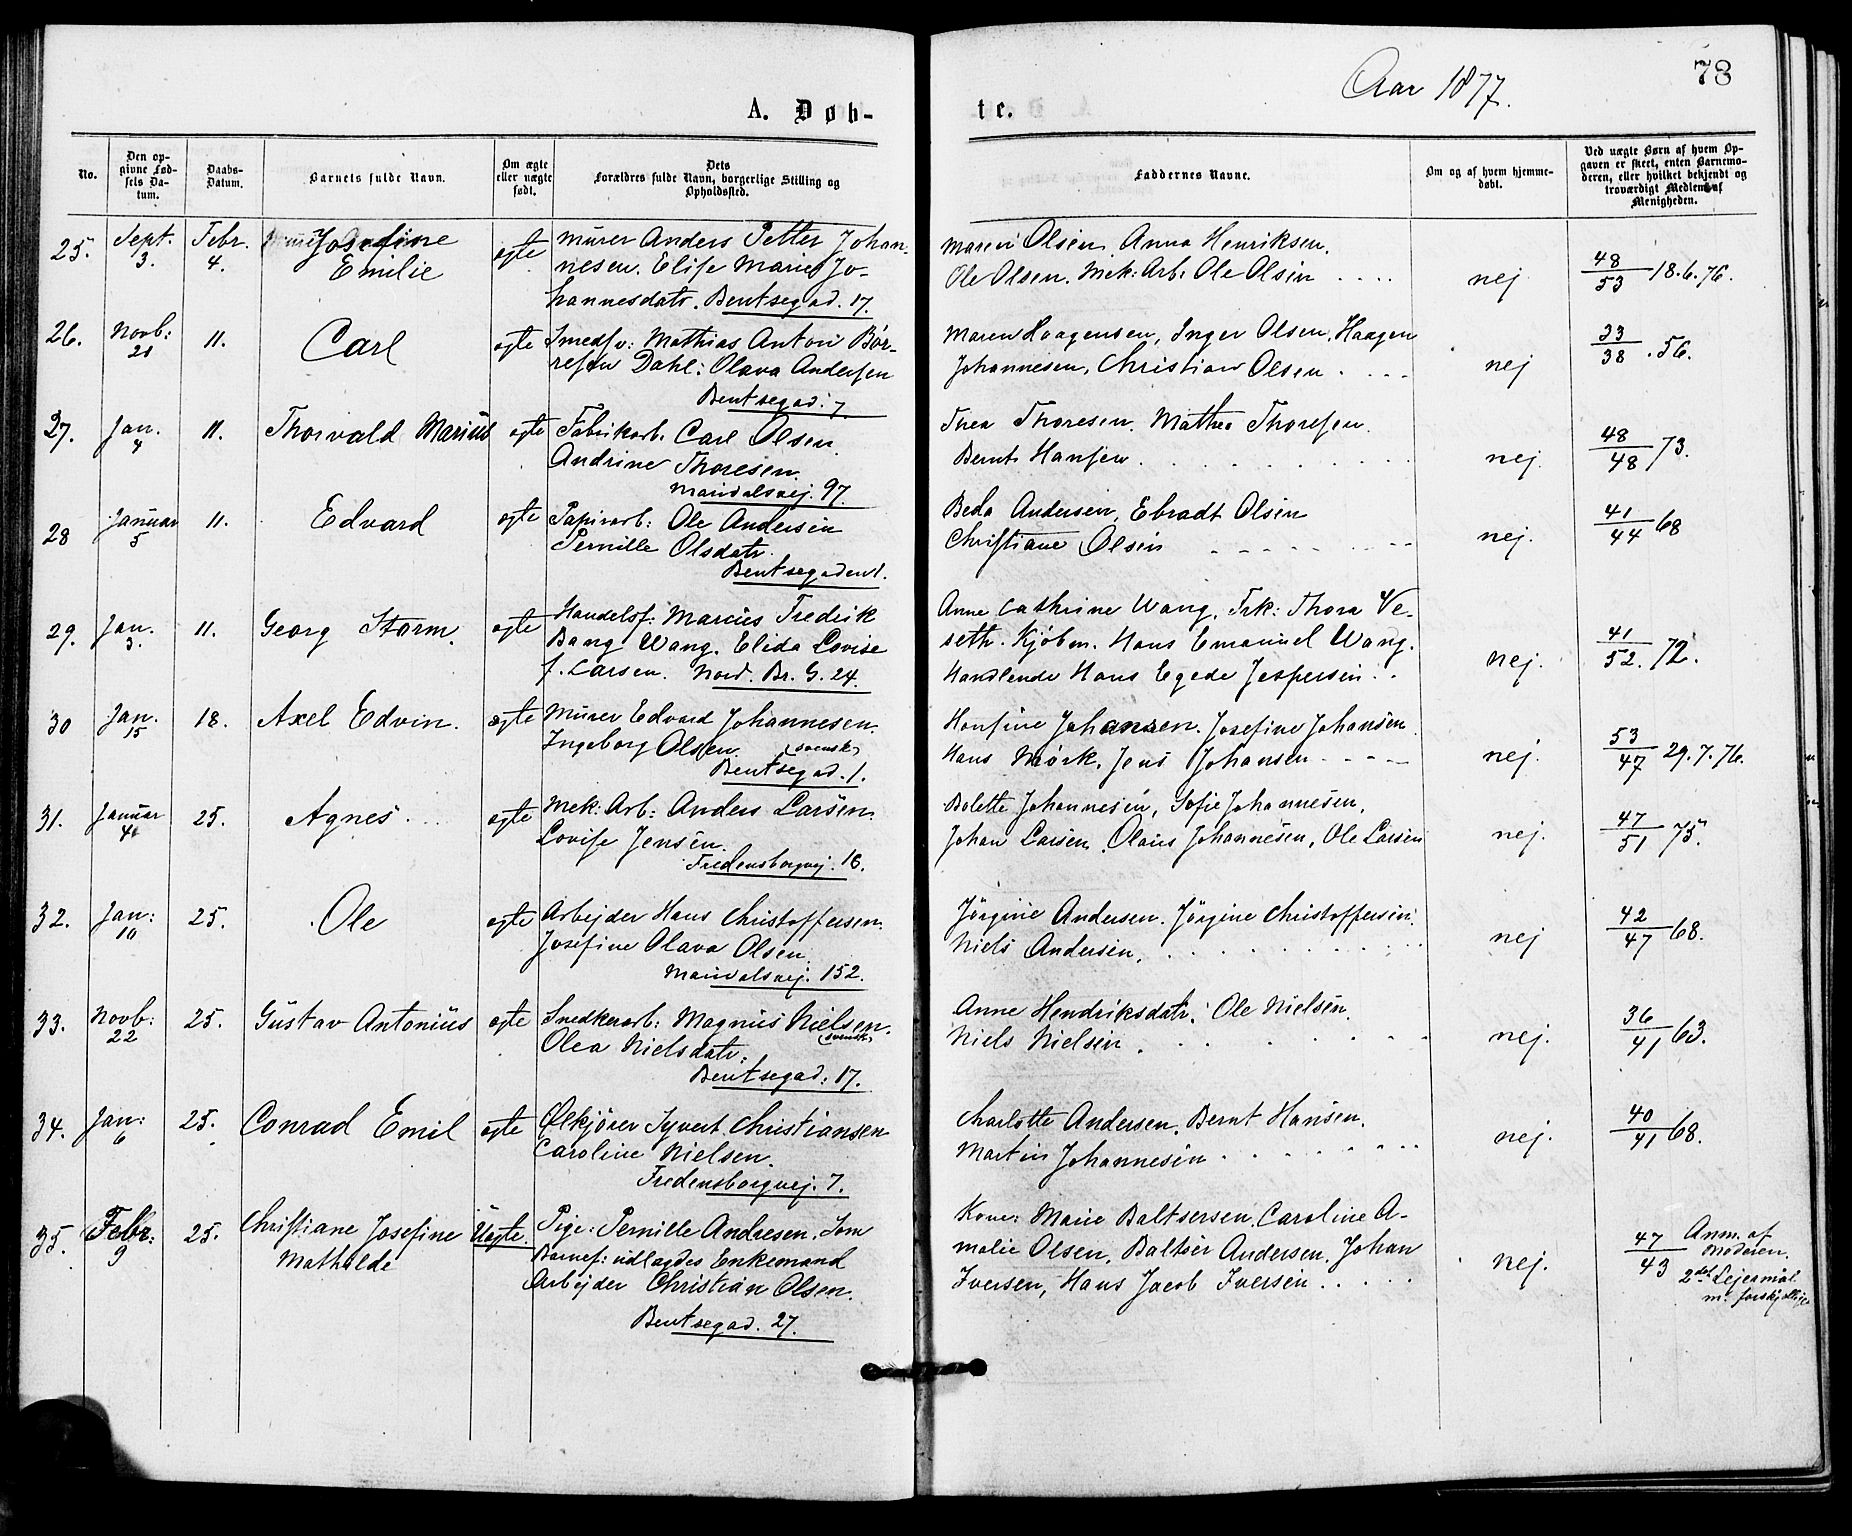 Aar 1877.
78
A. Døb-
te.
No.
Den op-
givne Fød-
sels Da-
tum.
Daabs-
Datum.
Barnets fulde Navn.
Om ægte
eller uægte
født.
Dets
Forældres fulde Navn, borgerlige Stilling og
Opholdssted.
Faddernes Navne.
Om og af hvem hjemme-
døbt.
Ved uægte Børn af hvem Op-
gaven er skeet, enten Barnemo-
deren, eller hvilket bekjendt og
troværdigt Medlem af
Menigheden.
25. Sept. 3. Febr. 4. Josefine
Emilie
ægte
Murer Anders Petter Johan-
nesen. Elise Marie Jo-
hannesdatr. Bentsegad. 17.
Maren Olsen, Anna Henriksen.
Ole Olsen. Mek: Arb. Ole Olsen
nej
48/53 18.6.76.
26. Novb: 21 11. Carl ægte
Smedsv: Mathias Anton Bør-
resen Dahl: Olava Andersen
Bentsegad. 7
Maren Haagensen, Inger Olsen, Haagen
Johannesen, Christian Olsen
nej
33/38 . 56.
27. Jan. 4 11. Thorvald Marius ægte
Fabrikarb. Carl Olsen.
Andrine Thoresen.
Maridalsvej. 97.
Thea Thoresen. Mathea Thoresen.
Bernt Hansen.
nej.
48/48 73.
28 Januar 5 11. Edvard ægte
Papirarb: Ole Andersen
Pernille Olsdatr.
Bentsegaden 1.
Beda Andersen, Ebradt Olsen
Christiane Olsen
nej.
41/44 68
29. Jan. 3. 11. Georg Storm. ægte
Handelsf: Marcus Fredrik
Bang Wang. Elida Lovise
f. Larsen. Nord. Br. G. 24.
Anne Cathrine Wang, Frk: Thora Ve-
seth. Kjøbm. Hans Emanuel Wang.
Handlende Hans Egede Jespersen.
nej.
41/52. 72.
30 Jan. 15 18. Axel Edvin. ægte
Murer Edvard Johannesen.
Ingeborg Olsen (svensk)
Bentsegad. 1.
Hansine Johansen. Josefine Johansen.
Hans Mörk, Jens Johansen
nej.
53/47 29.7.76.
31. Januar 25. Agnes ægte
Mek: Arb: Anders Larsen.
Lovise Jensen.
Fredensborgvej. 16.
Bolette Johannesen, Sofie Johannesen,
Johan Larsen, Olaus Johannesen, Ole Larsen
nej.
47/51 75.
32. Jan: 10 25. Ole ægte
Arbejder Hans Christoffersen.
Josefine Olava Olsen.
Maridalsvej. 152.
Jörgine Andersen. Jörgine Christoffersen.
Niels Andersen.
nej
42/47 68.
33. Novb: 22 25. Gustav Antonius ægte
Snedkerarb: Magnus Nielsen.
(svensk)
Olea Nielsdatr:
Bentsegad: 17.
Anne Hendriksdatr. Ole Nielsen.
Niels Nielsen.
nej.
36/41 63.
34. Jan: 6 25. Conrad Emil ægte
Ølkjører Syvert Christiansen
Caroline Nielsen.
Fredensborgvej. 7.
Charlotte Andersen, Bernt Hansen.
Martin Johannesen
nej.
40/41 68.
35. Febr: 9 25. Christiane Josefine
Mathilde
Uægte.
Pige: Pernille Andresen. Som
Barnef: udlagdes Enkemand
Arbejder Christian Olsen.
Bentsegad. 27.
Kone: Marie Baltsersen, Caroline A-
malie Olsen, Baltser Andersen, Johan
Iversen, Hans Jacob Iversen
nej.
47/43 Anm. af
Moderen.
2det Lejermål
m. forskjellige